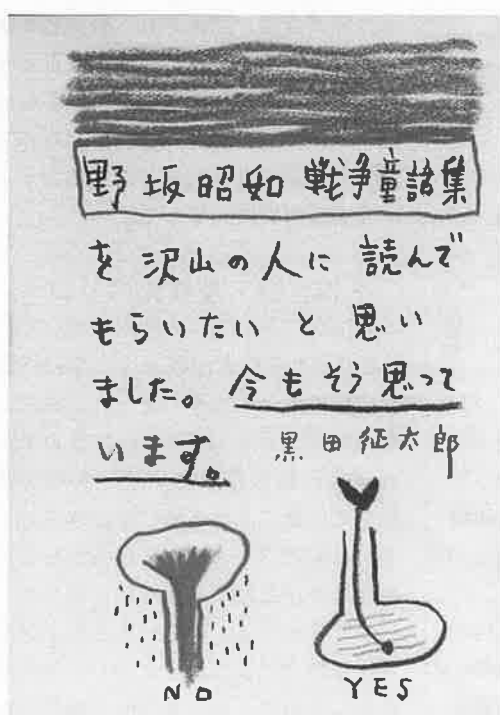 野坂昭如 戦争童話集
を沢山の人に 読んで
もらいたい と 思い
ました。今もそう思って
います。 黒田征太郎
NO YES